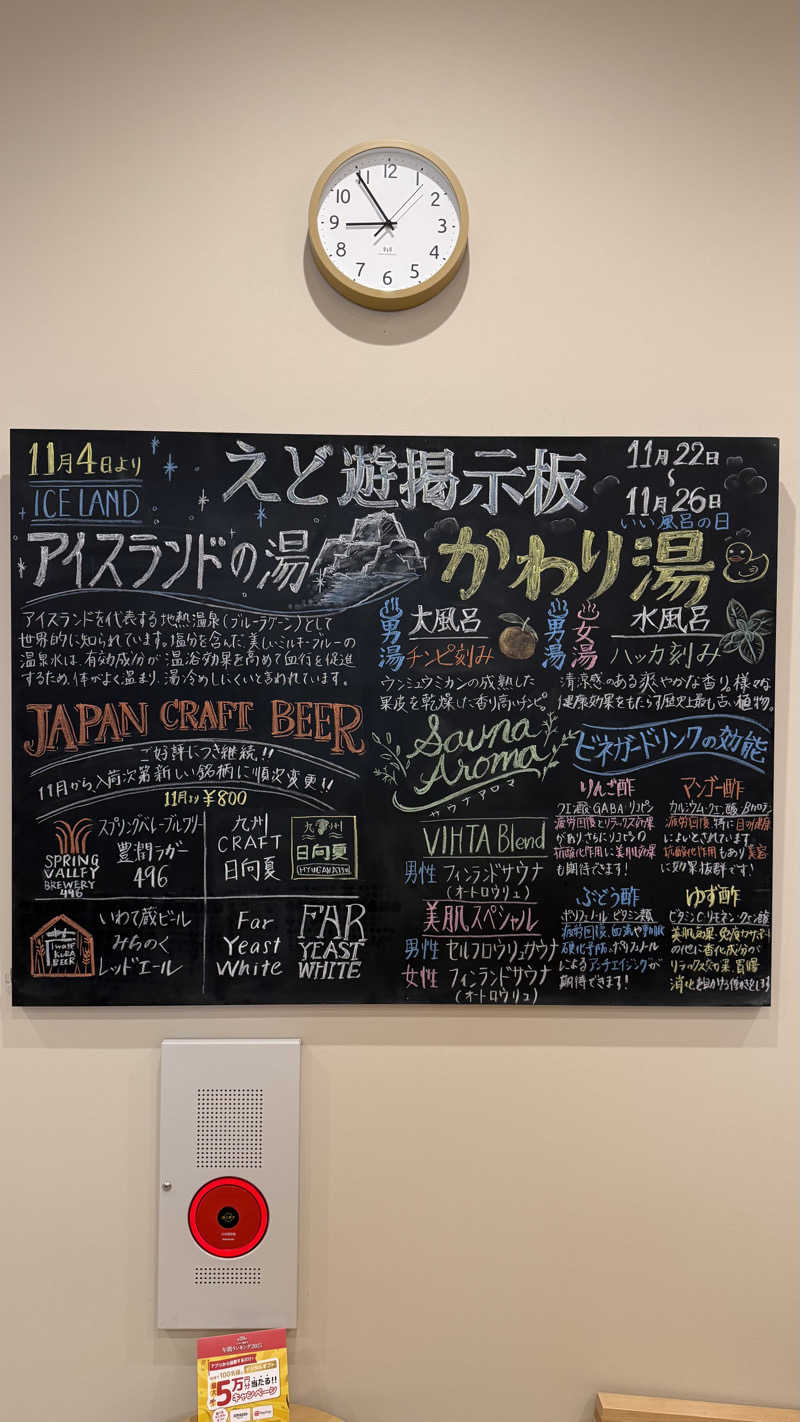 12
1
2
3
4
5
6
7
8
9
10
11
11月4日より
ICELAND
アイスランドの湯
えど遊掲示板
11月22日
〜
11月26日
いい風呂の日
かわり湯
アイスランドを代表する地熱温泉(ブルーラグーン)として
世界的に知られています。塩分を含んだ美しいミルキーブルーの
温泉水は、有効成分が温浴効果を高めて血行を促進
するため、体がよく温まり、湯冷めしにくいと言われています。
男湯
大風呂
チンピ刻み
ウンシュウミカンの成熟した
果皮を乾燥した香り高いチンピ。
男湯
女湯
水風呂
ハッカ刻み
清涼感のある爽やかな香り。様々な
健康効果をもたらす歴史上最も古い植物。
JAPAN CRAFT BEER
ご好評につき継続!!
11月から入荷次第新しい銘柄に順次変更!!
11月より¥800
SPRING
VALLEY
BREWERY
496
スプリングバレーブルワリー
豊潤ラガー
496
九州
CRAFT
日向夏
九州
日向夏
HYUGANATSU
Iwate
KURA
BEER
いわて蔵ビール
みちのく
レッドエール
Far
Yeast
White
FAR
YEAST
WHITE
Sauna
Aroma
サウナアロマ
VIHTA Blend
男性 フィンランドサウナ
(オートロウリュ)
美肌スペシャル
男性 セルフロウリュサウナ
女性 フィンランドサウナ
(オートロウリュ)
ビネガードリンクの効能
りんご酢
クエン酸 GABA リコピン
疲労回復とリラックス効果
がありさらにリコピンの
抗酸化作用に美肌効果
も期待できます!
マンゴー酢
カルシウム・クエン酸・βカロテン
疲労回復、特に目の健康
によいとされています
抗酸化作用もあり美容
に効果抜群です!
ぶどう酢
ポリフェノール ビタミン類
疲労回復、
ポリフェノール
によるアンチエイジングが
期待できます!
ゆず酢
ビタミンC・リモネン・クエン酸
美肌効果、免疫力サポート
の他に香化成分が
リラックス効果、胃腸
消化を助ける働きをします
年間ランキング2025
5万円分当たる!!
キャンペーン